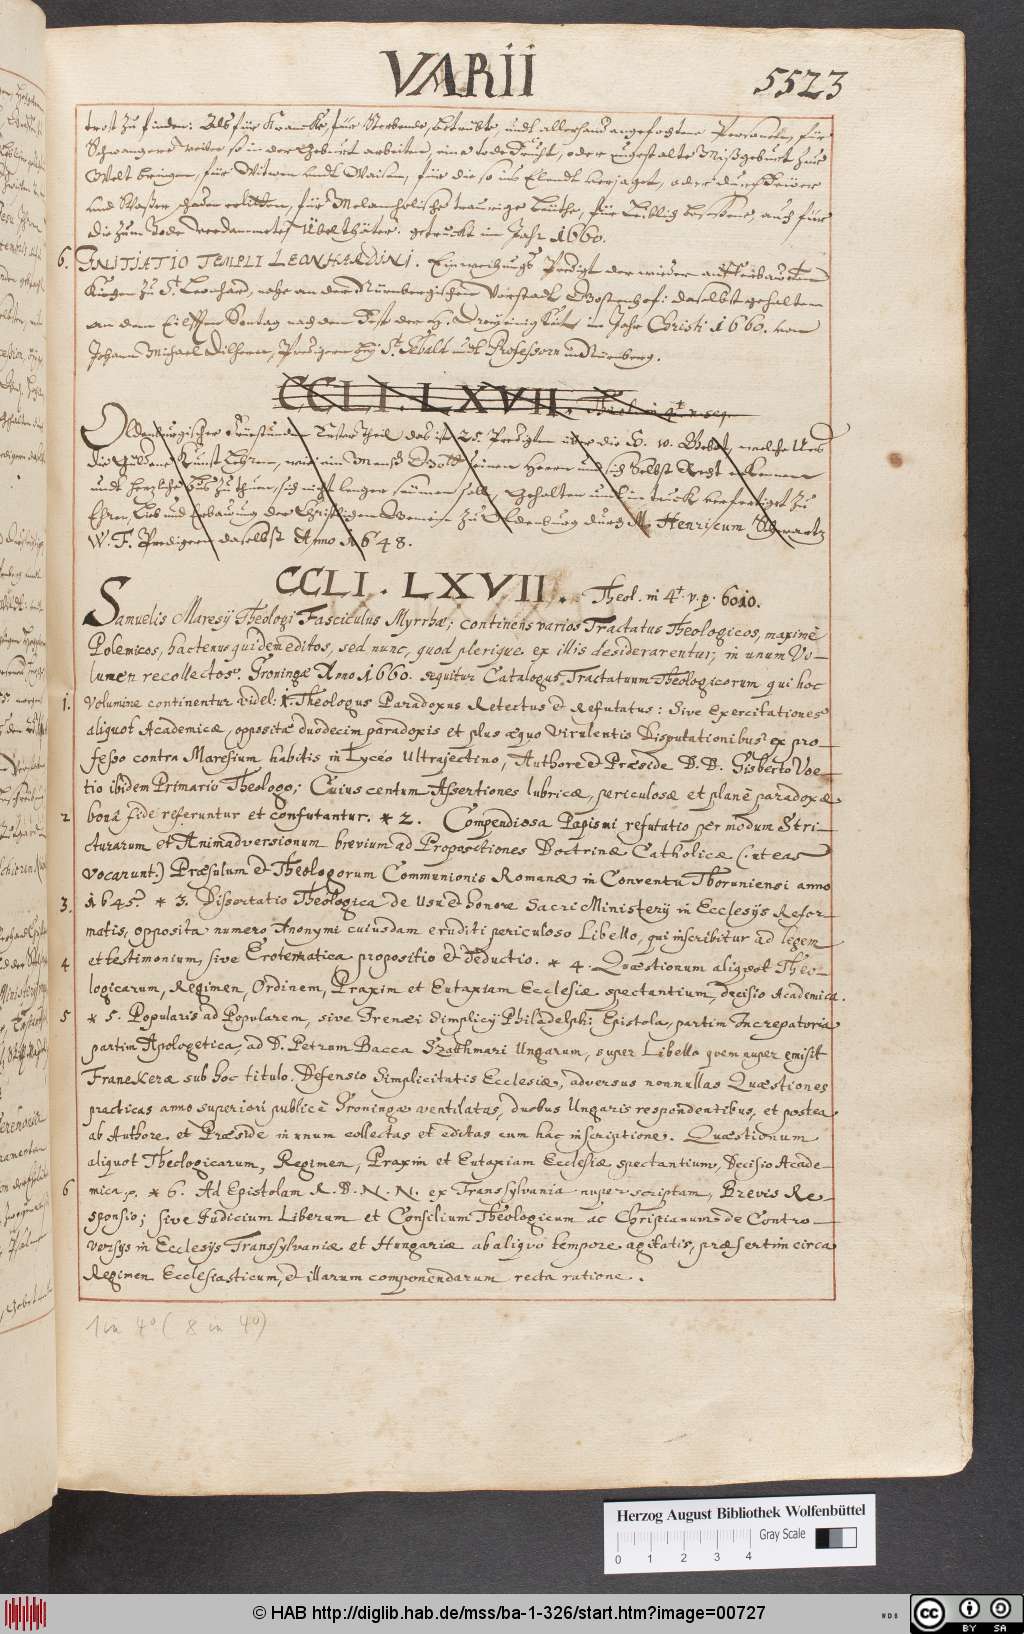 VARII
5523
trost zu finden: Als für Krancke, für Sterbende, betrübte, undt allerhand angefochtene Personen, für
Schwangere weiber so in der Geburt arbeiten, eine todte Frucht, oder ungestalte Mißgeburt zur
Welt bringen, für Witwen undt Waisen, für die so ins Elendt verjaget, oder durch Feüer
und Waßer schaden erlitten, für Melancholische traurige Leüthe, für Leiblich besessene, auch für
die zum Tode verdammete Übelthäter. getruckt im Jahr 1660.
6. INITIATIO TEMPLI LEONHARDINI. Einweihungs Predigt der wieder aufferbawten
Kirchen zu St. Leonhard, nahe an der Nürnbergischen Vorstadt Gostenhof: daselbst gehalten
an dem Eilfften Sontag nach dem Fest der H. Dreyeinigkeit im Jahr Christi 1660. von
Johann Michael Dilherrn, Predigern bey St. Sebald und Professorn in Nürnberg.
CCLI. LXVII. Theol. in 4t
Oldenburgischer Erster Theil das ist 25. Predigten über die welche Uns
die Kunst Lehren, wie ein Mensch Gott seinen Herrn und sich Selbst Recht erkennen
undt hertzliche Bus zu thun, sich nicht lenger säumen soll, Gehalten und in truck verfertiget zu
Ehren, Lieb und erbauung der Christlichen Gemein zu Oldenburg durch M. Henricum
W. F. Predigern daselbst Anno 1648.
CCLI. LXVII. Theol. in 4t. v. p. 6010.
Samuelis Maresij Theologi Fasciculus Myrrhæ; continens varios Tractatus Theologicos, maximè
Polemicos, hactenus quidem editos, sed nunc, quod plerique ex illis desiderarentur, in unum Vo-
lumen recollectos. Groningæ Anno 1660. sequitur Catalogus Tractatuum Theologicorum qui hoc
1. Volumine continentur videl: 1. Theologus Paradoxus Retectus et Refutatus: Sive Exercitationes
aliquot Academicæ, oppositæ duodecim paradoxis et plus æquo virulentis Disputationibus ex pro-
fesso contra Maresium habitis in Lycéo Ultrajectino, Authore et Præside D. D. Gisberto Voe-
tio ibidem Primario Theologo; Cuius centum Assertiones lubricæ, periculosæ et planè paradoxæ
2 bonâ fide referuntur et confutantur. * 2. Compendiosa Papismi refutatio per modum Stri-
cturarum et Animadversionum brevium ad Propositiones Doctrinæ Catholicæ (: ut eas
vocarunt:) Præsulum et Theologorum Communionis Romanæ in Conventu Thoruniensi anno
3. 1645. * 3. Dissertatio Theologica de Usu et honore Sacri Ministerij in Ecclesijs Refor-
matis, opposita numero Anonymi cuiusdam eruditi periculoso Libello, qui inscribitur ad legem
4 et testimonium, sive Erotematica propositio et Deductio. * 4. Quæstionum aliquot Theo-
logicarum, Regimen, Ordinem, Praxim et Eutaxiam Ecclesiæ spectantium, decisio Academica.
5 * 5. Popularis ad Popularem, sive Irenæi Simplicij Philadelphi Epistola, partim Increpatoria
partim Apologetica, ad D. Petrum Bacca Szathmari Ungarum, super Libello quem nuper emisit
Franekeræ sub hoc titulo. Defensio Simplicitatis Ecclesiæ, adversus nonnullas Quæstiones
practicas anno superiori publicè Groningæ ventilatas, duobus Ungaris respondentibus, et postea
ab Authore et Præside in unum collectas et editas cum hac inscriptione. Quæstionum
aliquot Theologicarum, Regimen, Praxim et Eutaxiam Ecclesiæ spectantium, Decisio Acade-
6 mica p. * 6. Ad Epistolam R. D. N. N. ex Transsylvania nuper scriptam, Brevis Re-
sponsio; sive Iudicium Liberum et Consilium Theologicum ac Christianum de Contro-
versijs in Ecclesijs Transsylvaniæ et Hungariæ ab aliquo tempore agitatis, præsertim circa
Regimen Ecclesiasticum, et illarum componendarum recta ratione.
1 in 4° ( 8 in 4°)
Herzog August Bibliothek Wolfenbüttel
Gray Scale
0 1 2 3 4
© HAB http://diglib.hab.de/mss/ba-1-326/start.htm?image=00727
WDB
cc BY SA